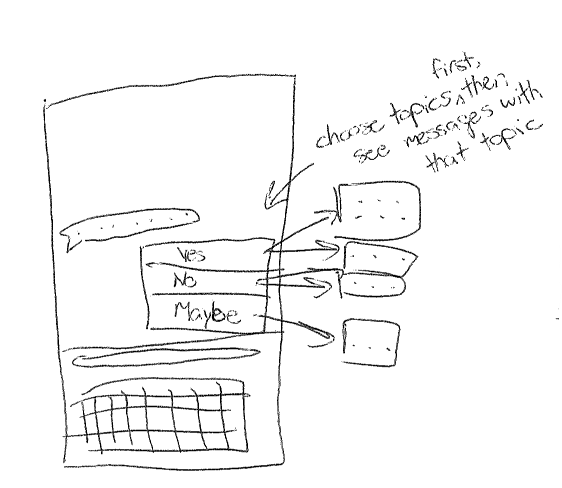 first,
choose topics, then
see messages with
that topic
Yes
No
Maybe